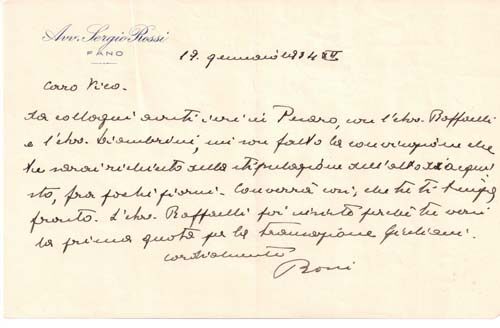 Avv. Sergio Rossi
FANO
19. gennaio 1934 XII
Caro Vico.
Da colloqui avuti ieri in Pesaro, con l'Avv. Raffaelli
e l'Avv. Giambrini, mi son fatto la convinzione che
tu sarai richiesto della stipulazione dell'atto di acqui
sto, fra pochi giorni. Converrà così, che tu ti tenga
pronto. L'Avv. Raffaelli poi insiste perché tu versi
la prima quota per la transazione Giuliani.
Cordialmente
Rossi